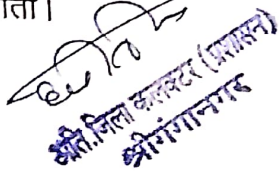 ता।
अति.जिला कलक्टर (प्रशासन)
श्रीगंगानगर